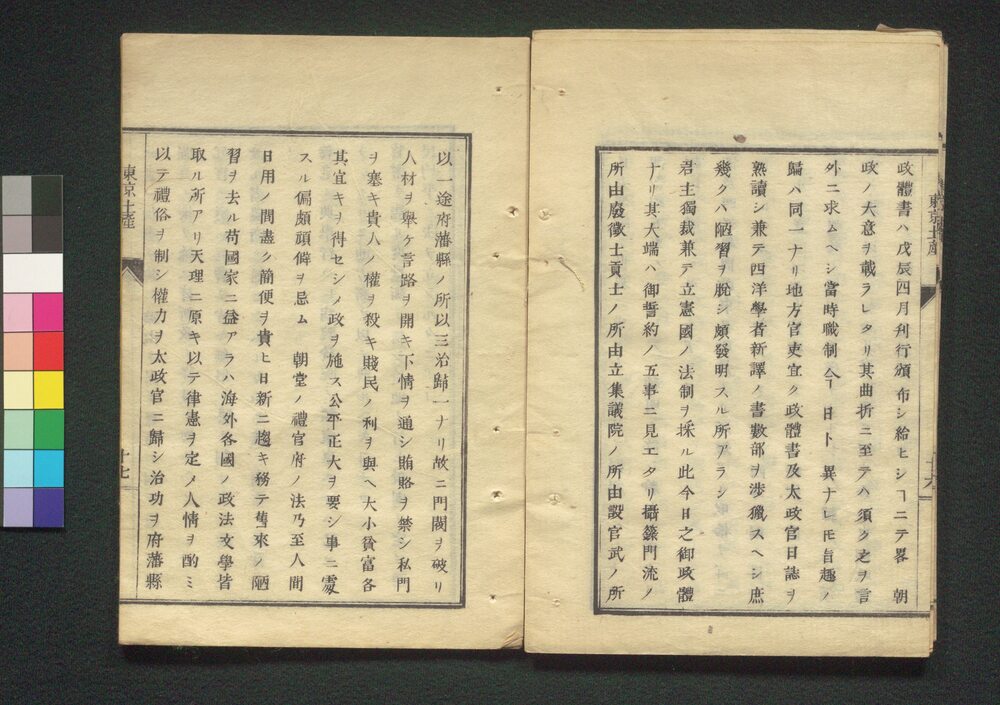 東京土産
政體書ハ戊辰四月刋行頒布シ給ヒシヿニテ畧　朝
政ノ大意ヲ載ラレタリ其曲折ニ至テハ須ク之ヲ言
外ニ求ムヘシ當時職制今日ト異ナレ𪜈旨趣ノ
歸ハ同一ナリ地方官吏宜ク政體書及太政官日誌ヲ
熟讀シ兼テ西洋學者新譯ノ書數部ヲ涉獵スヘシ庶
幾クハ陋習ヲ脫シ頗發明スル所アラン
君主獨裁兼テ立憲國ノ法制ヲ採ル此今日之御政體
ナリ其大端ハ御誓約ノ五事ニ見エタリ攝籙門流ノ
所由廢徵士貢士ノ所由立集議院ノ所由設官武ノ所
以一途府藩縣ノ所以三治歸一ナリ故ニ門閥ヲ破リ
人材ヲ舉ケ言路ヲ開キ下情ヲ通シ賄賂ヲ禁シ私門
ヲ塞キ貴人ノ權ヲ殺キ賤民ノ利ヲ與ヘ大小貧富各
其宜キヲ得セシメ政ヲ施ス公平正大ヲ要シ事ニ處
スル偏頗頑僻ヲ忌ム　朝堂ノ禮官府ノ法乃至人間
日用ノ間盡ク簡便ヲ貴ヒ日新ニ趨キ務テ舊來ノ陋
習ヲ去ル苟國家ニ益アラハ海外各國ノ政法文學皆
取ル所アリ天理ニ原キ以テ律憲ヲ定メ人情ヲ酌ミ
以テ禮俗ヲ制シ權力ヲ太政官ニ歸シ治功ヲ府藩縣
東京土産
十七